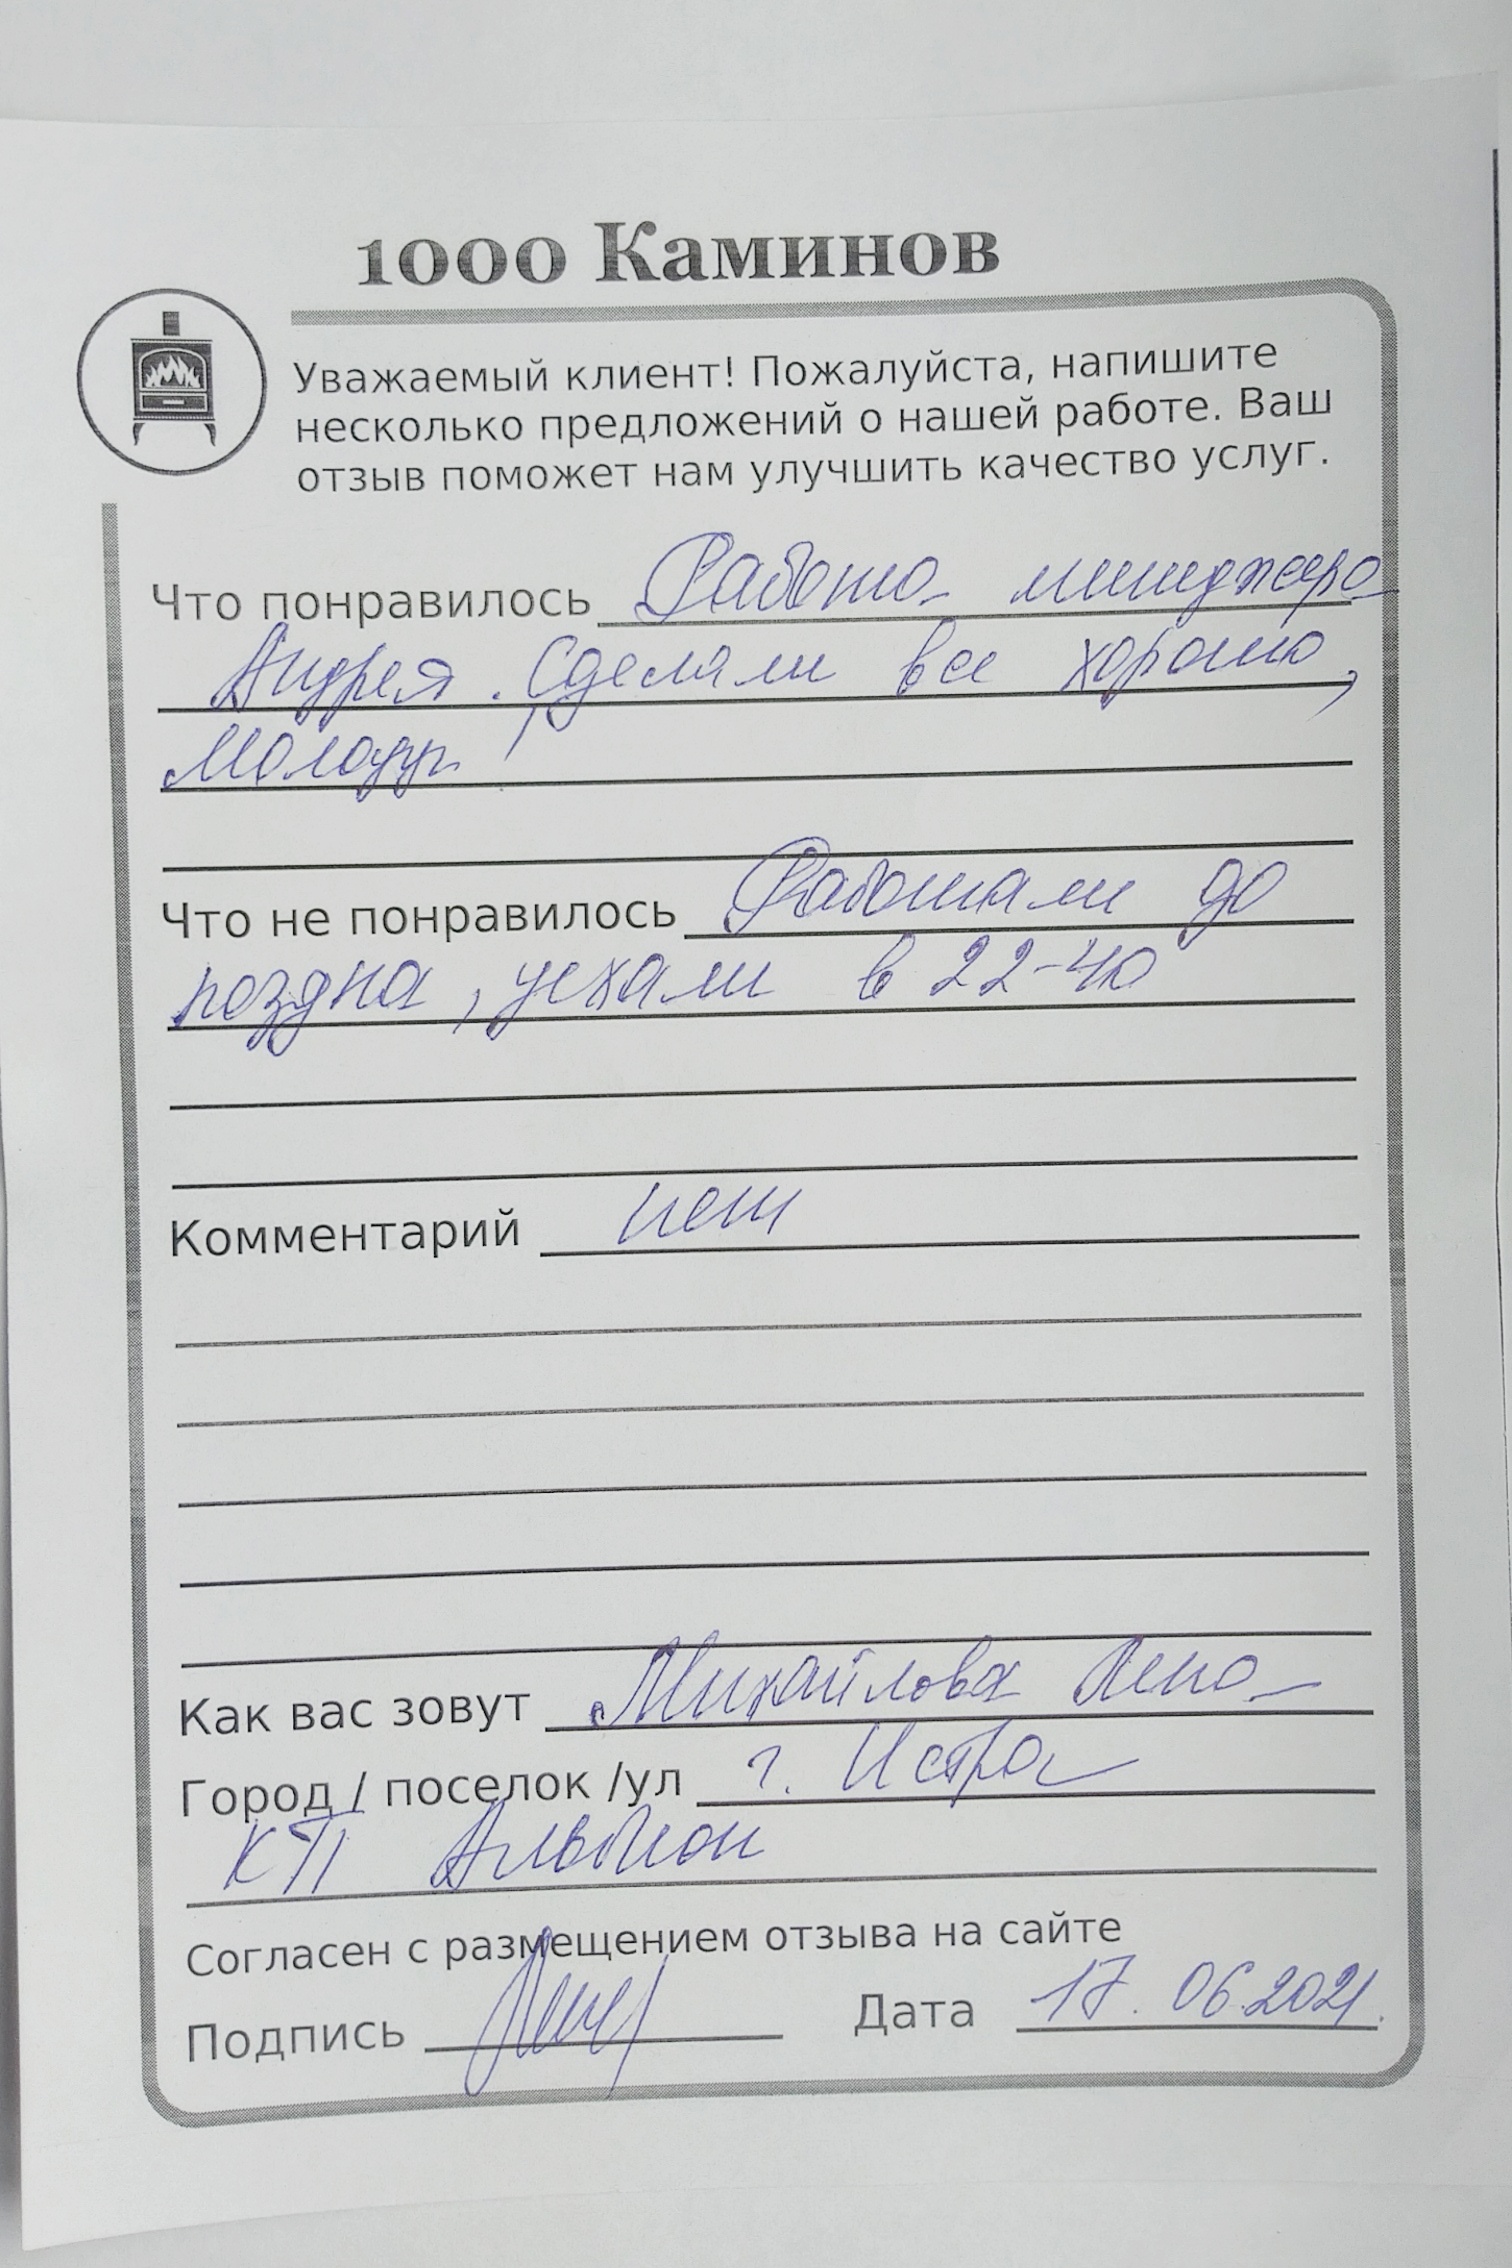 1000 Каминов
Уважаемый клиент! Пожалуйста, напишите
несколько предложений о нашей работе. Ваш
отзыв поможет нам улучшить качество услуг.
Что понравилось Работа менеджера
Андрея. Сделали все хорошо,
Молодцы!
Что не понравилось Работали до
поздна, уехали в 22-40
Комментарий нет
Как вас зовут Михайлова
Город / поселок /ул г. Истра
КП Альбион
Согласен с размещением отзыва на сайте
Подпись Дата 17.06.2021.